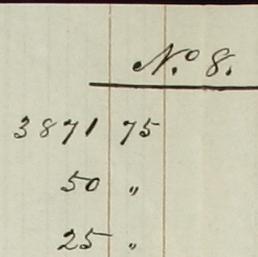 No. 8.
3871 75
50 "
25 "